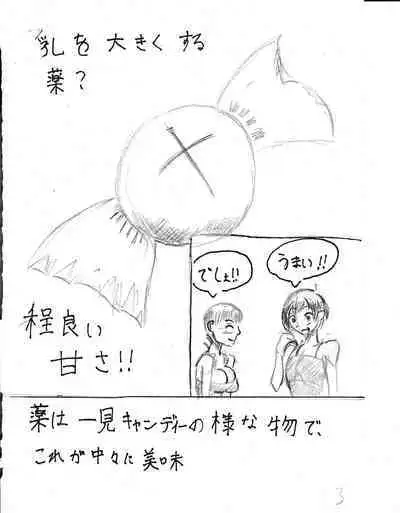 乳を大きくする
薬?
うまい!!
でしょ!!
程良い
甘さ!!
薬は一見キャンディーの様な物で、
これが中々に美味
3